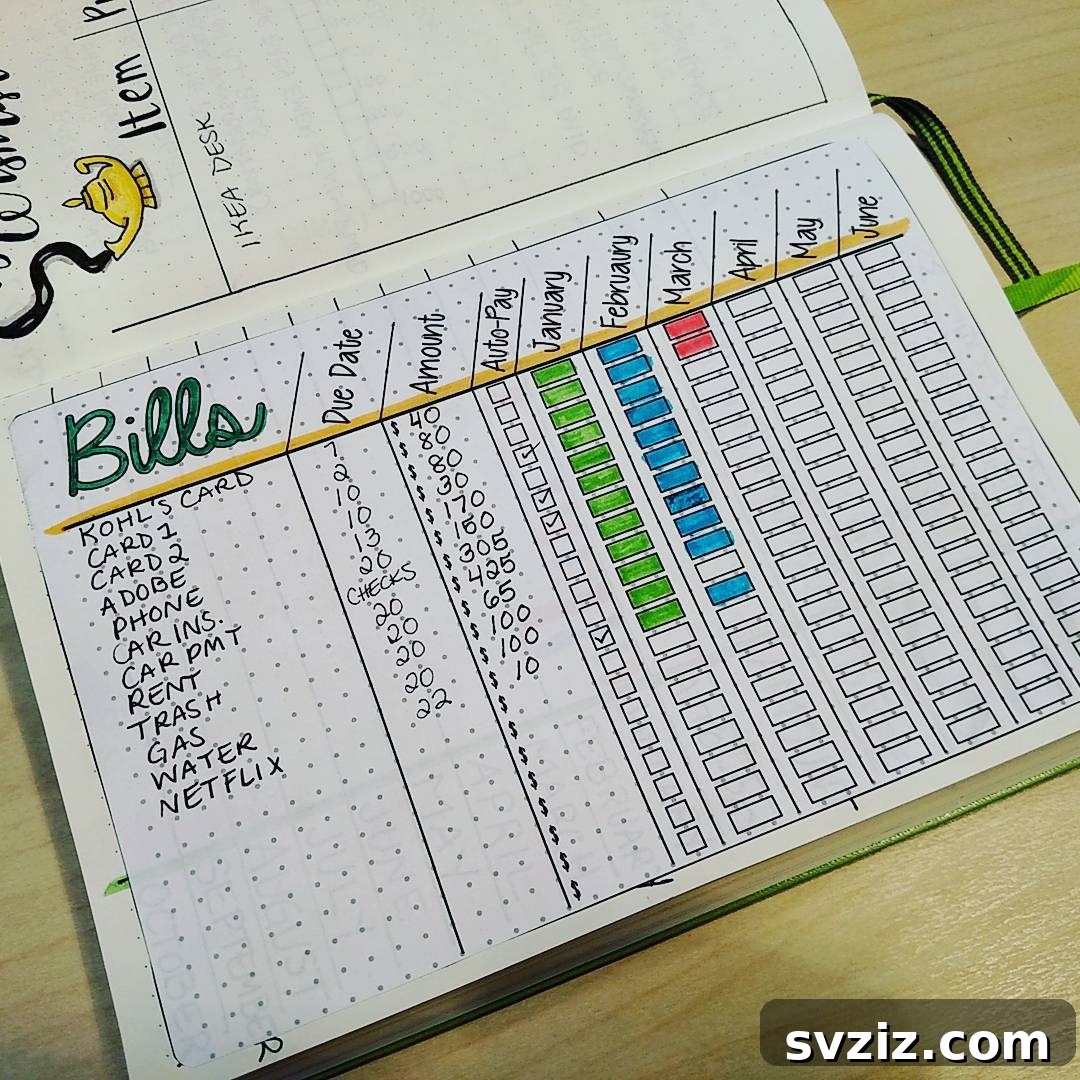 Item
IKEA DESK
Bills Due Date Amount Auto-Pay January Februaury March April May June
KOHL'S CARD $ 40
CARD 1 2 $ 80
CARD 2 10 $ 80
ADOBE 10 $ 30
PHONE 13 $ 170
CAR INS. 20 $ 150
CAR PMT CHECKS $ 305
RENT 20 $ 425
TRASH 20 $ 65
GAS 20 $ 100
WATER 20 $ 100
NETFLIX 22 $ 10
svziz.com